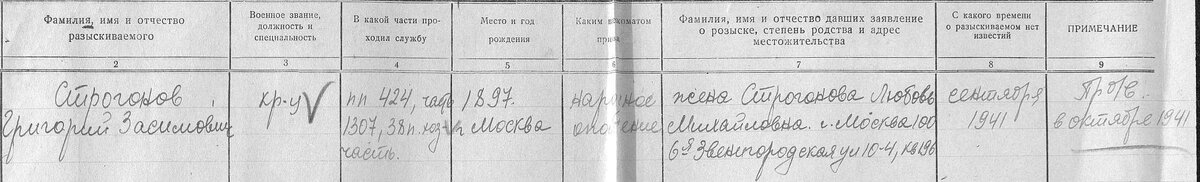 Фамилия, имя и отчество разыскиваемого
Военное звание, должность и специальность
В какой части проходил службу
Место и год рождения
Каким военкоматом призван
Фамилия, имя и отчество давших заявление о розыске, степень родства и адрес местожительства
С какого времени о разыскиваемом нет известий
ПРИМЕЧАНИЕ
2
3
4
5
6
7
8
9
Строгонов
Григорий Засимович
кр-ц
пп 424, часть
1307, 38 п.
часть.
1897.
Москва
народное
ополчение
жена Строганова Любовь
Михайловна. г. Москва 100
6я Звенигородская ул 10-4, кв 196
сентября
1941
Пр/б.
в октябре 1941